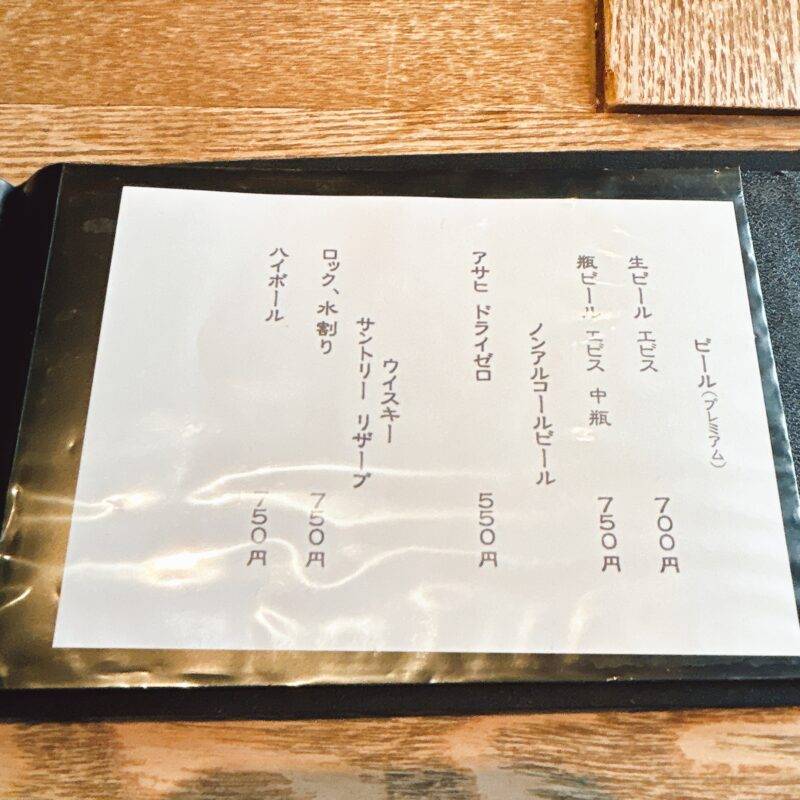 ビール(プレミアム)
生ビール エビス 700円
瓶ビール エビス 中瓶 750円
ノンアルコールビール
アサヒ ドライゼロ 550円
ウイスキー
サントリー リザーブ
ロック、水割り 750円
ハイボール 750円